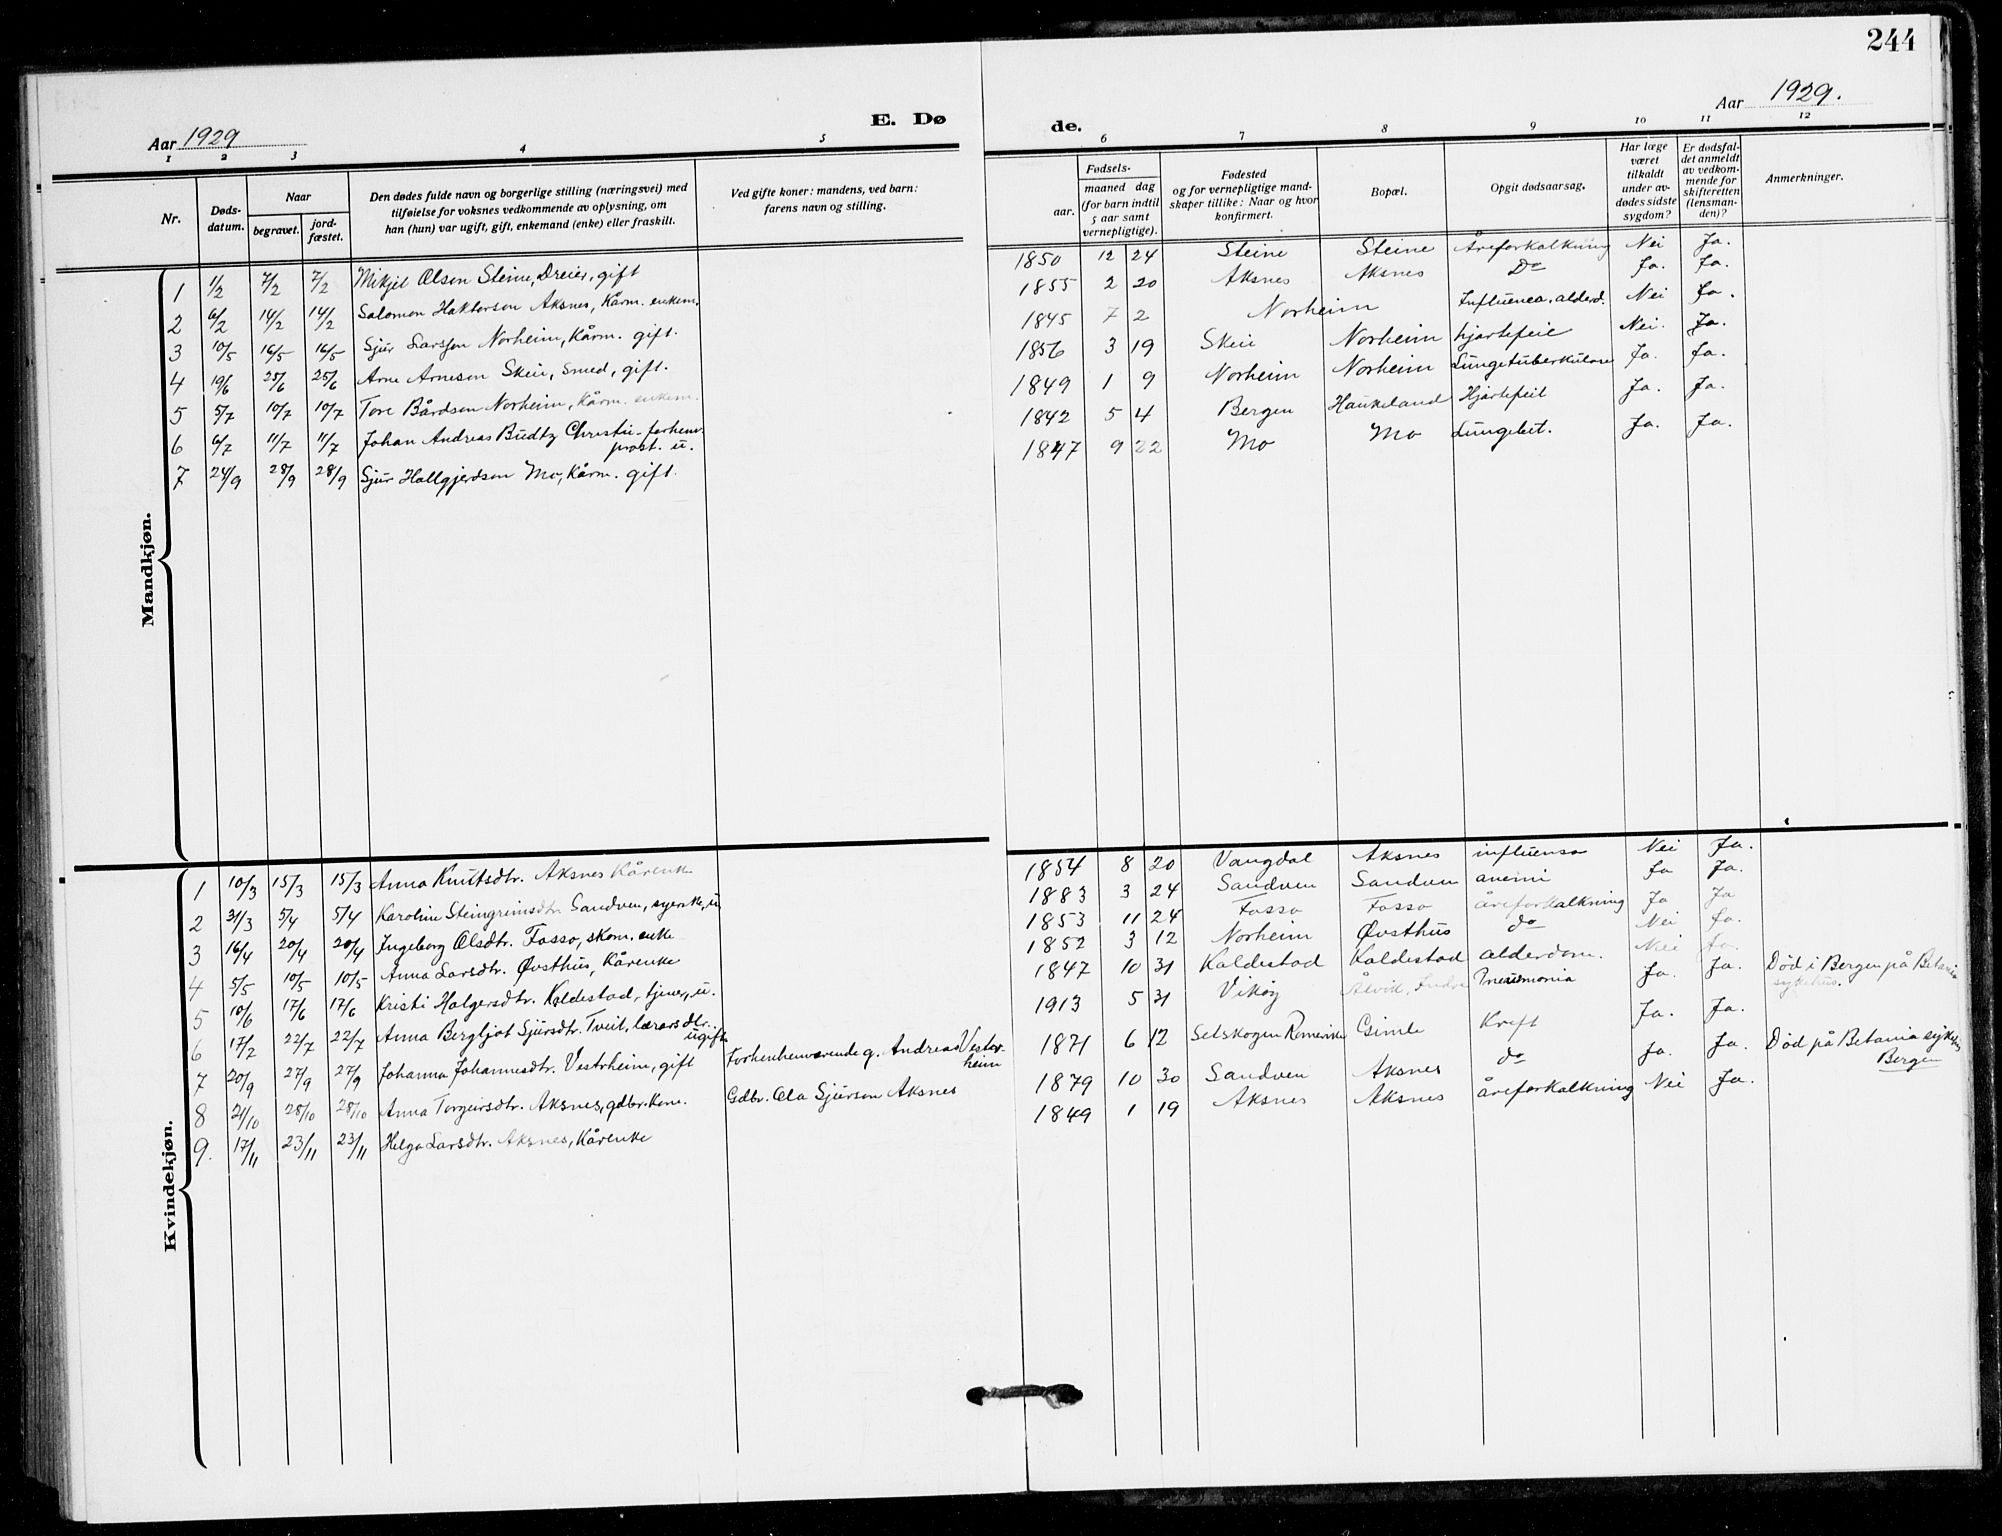 244
Aar 1929
Aar 1929.
E. Dø
de.
1 2 3 4 5 6 7 8 9 10 11 12
Nr.
Døds-
datum.
Naar
begravet.
jord-
fæstet.
Den dødes fulde navn og borgerlige stilling (næringsvei) med
tilføielse for voksnes vedkommende av oplysning, om
han (hun) var ugift, gift, enkemand (enke) eller fraskilt.
Ved gifte koner: mandens, ved barn:
farens navn og stilling.
Fødsels-
aar.
maaned dag
(for barn indtil
5 aar samt
vernepligtige).
Fødested
og for vernepligtige mand-
skaper tillike: Naar og hvor
konfirmert.
Bopæl.
Opgit dødsaarsag.
Har læge
været
tilkaldt
under av-
dødes sidste
sygdom?
Er dødsfal-
det anmeldt
av vedkom-
mende for
skifteretten
(lensman-
den)?
Anmerkninger.
Mandkjøn.
1 1/2 7/2 7/2 Mikjel Olsen Steine, Dreier, gift 1850 12 24 Steine Steine Åreforkalkning Nei Ja.
2 6/2 14/2 14/2 Salomon Haktorson Aksnes, Kårm. enkem. 1855 2 20 Aksnes Aksnes Do Ja. Ja.
3 10/5 16/5 16/5 Sjur Larsson Norheim, Kårm. gift. 1845 7 2 Norheim Influenca, alderd. Nei Ja.
4 19/6 25/6 25/6 Arne Arneson Skeie, smed, gift. 1856 3 19 Skeie Norheim hjartefeil Nei. Ja.
5 5/7 10/7 10/7 Tore Bårdson Norheim, Kårm. enkem. 1849 1 9 Norheim Norheim Lungetuberkulose Ja. Ja.
6 6/7 11/7 11/7 Johan Andreas Budtz Christie - forhenv. 1842 5 4 Bergen Haukeland Hjartefeil Ja. Ja.
prost. u.
7 24/9 28/9 28/9 Sjur Hallgjerdson Mo, Kårm. gift. 1847 9 22 Mo Mo Lungebet. Ja. Ja.
Kvindekjøn.
1 10/3 15/3 15/3 Anna Knutsdtr. Aksnes Kårenke 1854 8 20 Vangdal Aksnes influensa Nei Ja.
2 31/3 5/4 5/4 Karoline Steingrimsdtr. Sandven, syerske, u. 1883 3 24 Sandven Sandven anemi Ja Ja.
3 16/4 20/4 20/4 Ingeborg Olsdtr. Fosso, skom. enke 1853 11 24 Fosso Fosso åreforkalkning Ja Ja
4 5/5 10/5 10/5 Anna Larsdtr. Øvsthus, Kårenke 1852 3 12 Norheim Øvsthus do Nei Ja.
5 10/6 17/6 17/6 Kristi Holgersdtr. Kaldestad, tjener, u. 1847 10 31 Kaldestad Kaldestad alderdom. Nei Ja.
6 17/2 22/7 22/7 Anna Bergljot Sjursdtr. Tveit, lærarsdtr. 1913 5 31 Vikøy Ålvik, Indre Pneumonia Ja. Ja. Død i Bergen på Betania
ugift sykehus.
7 20/9 27/9 27/9 Johanna Johannesdtr. Vestrheim, gift Forhenhenværende g. Andreas Vestr- 1871 6 12 Selskogen Romerike Gimle Kreft Ja. Ja.
heim
8 21/10 28/10 28/10 Anna Torgeirsdtr. Aksnes, gdbr. kone. Gdbr. Ola Sjurson Aksnes 1879 10 30 Sandven Aksnes do Ja. Ja. Død på Betania sykehus
Bergen
9. 17/11 23/11 23/11 Helga Larsdtr. Aksnes, Kårenke 1849 1 19 Aksnes Aksnes åreforkalkning Nei Ja.